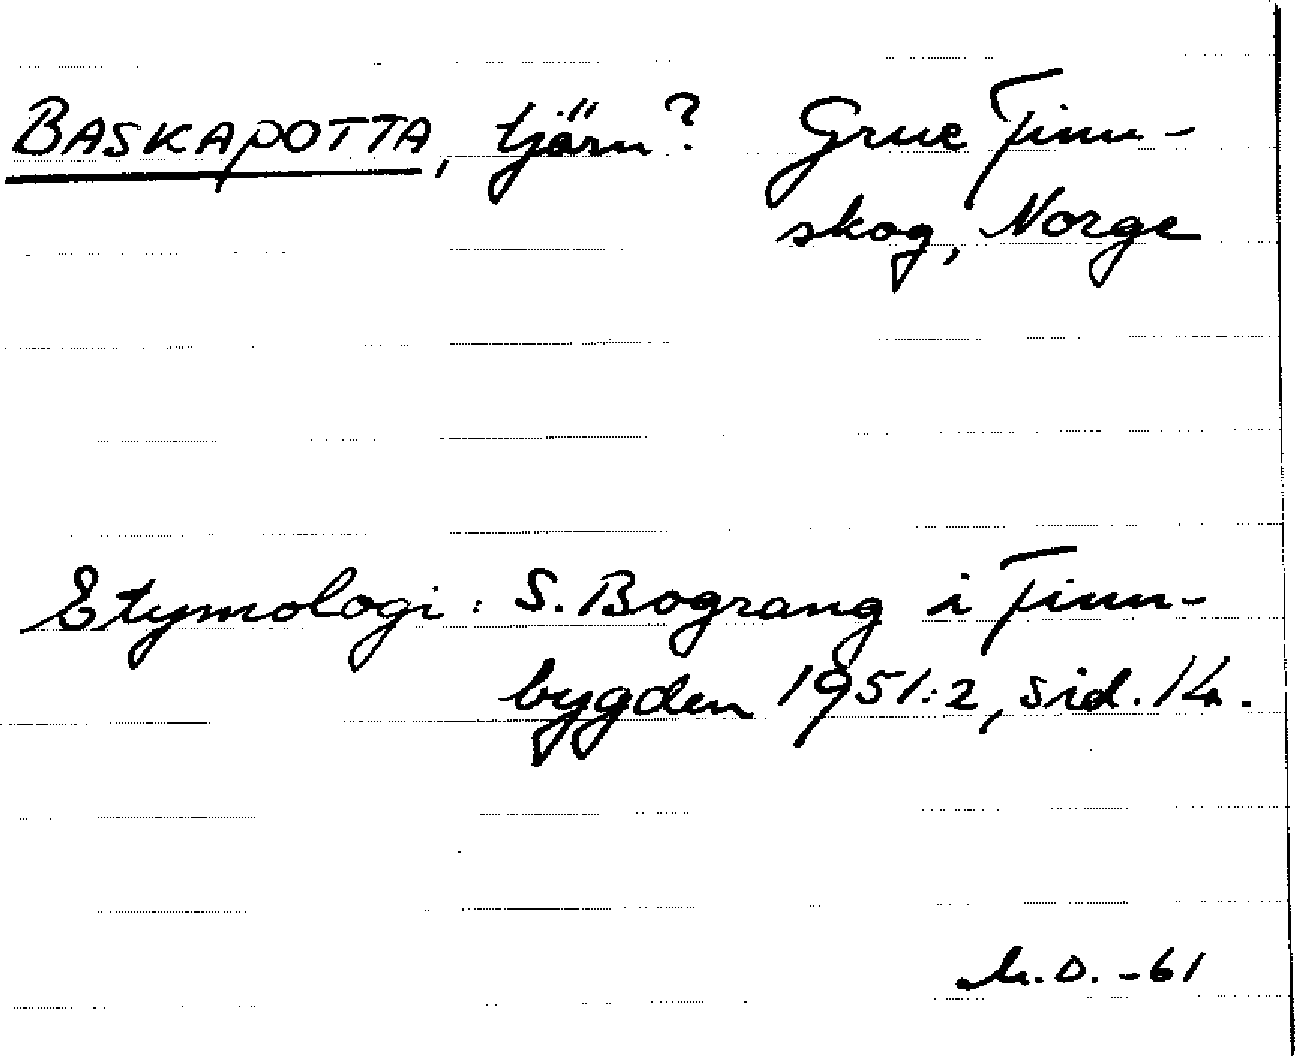 BASKAPOTTA, tjärn? Grue Finn-
skog, Norge
Etymologi: S. Bograng i Finn-
bygden 1951:2, sid. 14.
M.O. -61